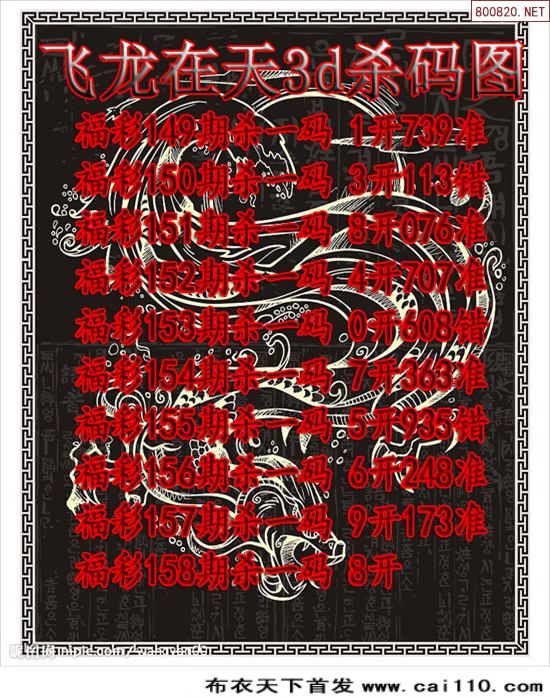 800820.NET
飞龙在天3d杀码图
福彩149期杀一码 1开739准
福彩150期杀一码 3开113错
福彩151期杀一码 8开076准
福彩152期杀一码 4开707准
福彩153期杀一码 0开608错
福彩154期杀一码 7开363准
福彩155期杀一码 5开935错
福彩156期杀一码 6开248准
福彩157期杀一码 9开173准
福彩158期杀一码 8开
布衣天下首发 www.cai110.com